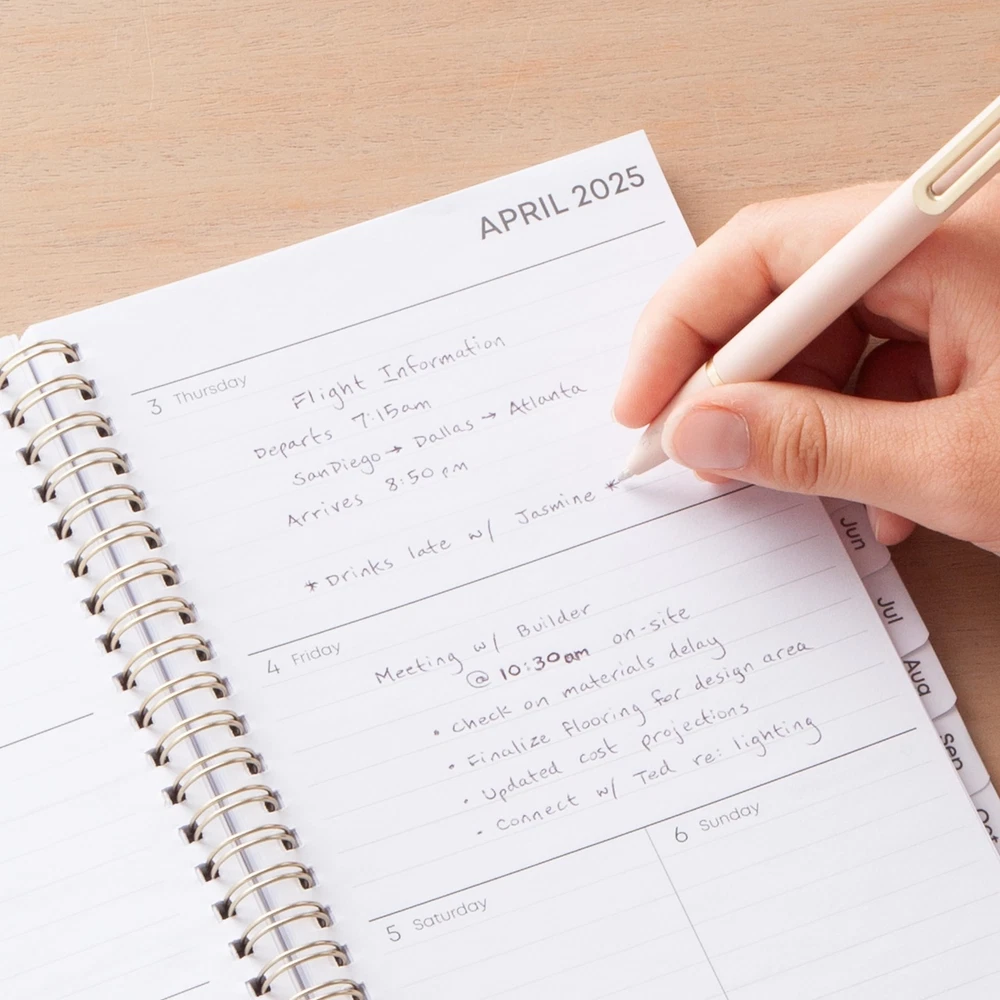 APRIL 2025
3 Thursday
Flight Information
Departs 7:15am
SanDiego → Dallas → Atlanta
Arrives 8:50pm
* Drinks late w/ Jasmine *
4 Friday
Meeting w/ Builder
@ 10:30am on-site
• check on materials delay
• Finalize flooring for design area
• Updated cost projections
• Connect w/ Ted re: lighting
5 Saturday
6 Sunday
Jun
Jul
Aug
Sep
Oct